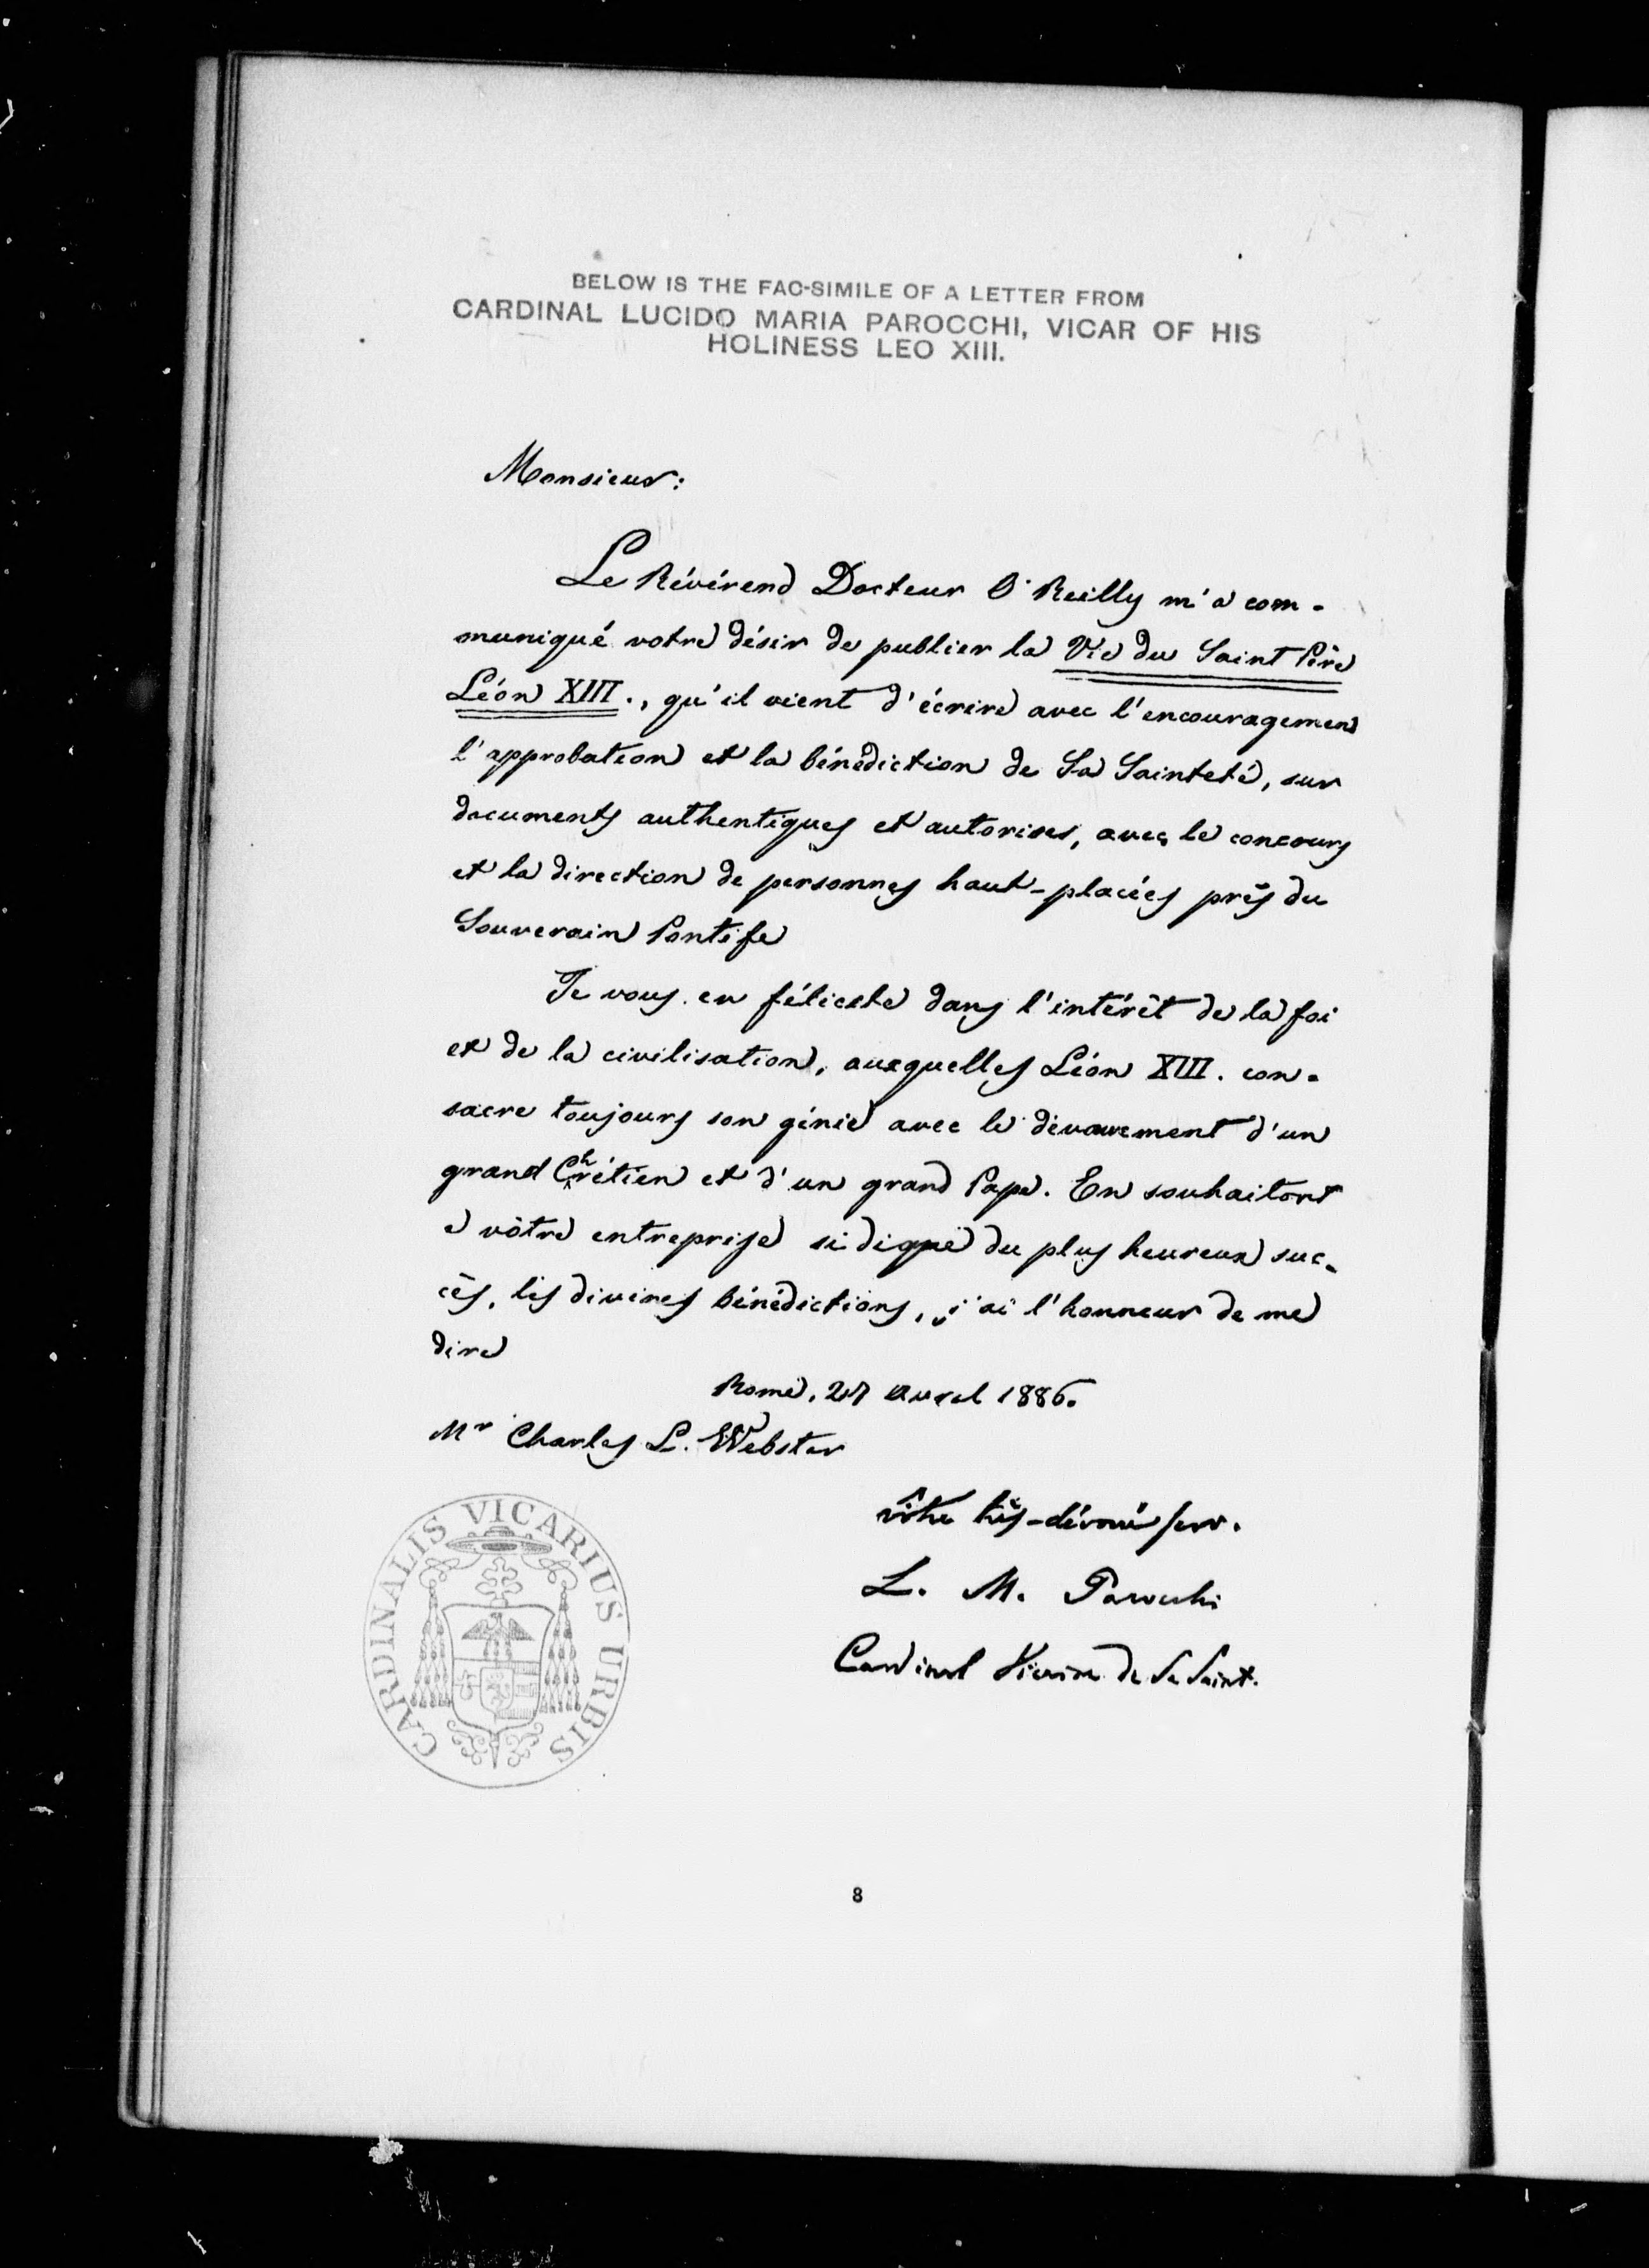 BELOW IS THE FAC-SIMILE OF A LETTER FROM
CARDINAL LUCIDO MARIA PAROCCHI, VICAR OF HIS
HOLINESS LEO XIII.
Monsieur:
Le Révérend Docteur O'Reilly m'a com-
muniqué votre désir de publier la Vie du Saint Père
Léon XIII., qu'il vient d'écrire avec l'encouragement
l'approbation et la bénédiction de Sa Sainteté, sur
documents authentiques et autorises, avec le concours
et la direction de personnes haut-placées près du
Souverain Pontife
Je vous en félicite dans l'intérêt de la foi
et de la civilisation, auxquelles Léon XIII. con-
sacre toujours son génie avec le dévouement d'un
grand Chrétien et d'un grand Pape. En souhaitant
a vôtre entreprise si digne du plus heureux suc-
cès, les divines bénédictions, j'ai l'honneur de me
dire
Rome, 27 Avril 1886.
Mr Charles L. Webster
vôtre très-dévoué serv.
L. M. Parocchi
Cardinal Vicaire de Sa Saint.
CARDINALIS VICARIUS URBIS
8